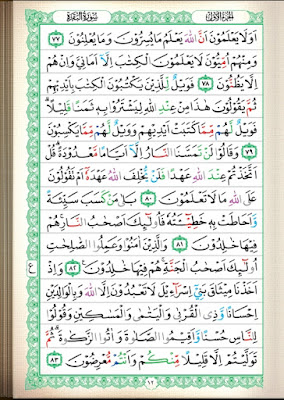 الجزء الأول
سورة البقرة
أَوَلَا يَعْلَمُونَ أَنَّ اللَّهَ يَعْلَمُ مَا يُسِرُّونَ وَمَا يُعْلِنُونَ ٧٧
وَمِنْهُمْ أُمِّيُّونَ لَا يَعْلَمُونَ الْكِتَابَ إِلَّا أَمَانِيَّ وَإِنْ هُمْ
إِلَّا يَظُنُّونَ ٧٨ فَوَيْلٌ لِلَّذِينَ يَكْتُبُونَ الْكِتَابَ بِأَيْدِيهِمْ
ثُمَّ يَقُولُونَ هَذَا مِنْ عِنْدِ اللَّهِ لِيَشْتَرُوا بِهِ ثَمَنًا قَلِيلًا
فَوَيْلٌ لَهُمْ مِمَّا كَتَبَتْ أَيْدِيهِمْ وَوَيْلٌ لَهُمْ مِمَّا يَكْسِبُونَ
٧٩ وَقَالُوا لَنْ تَمَسَّنَا النَّارُ إِلَّا أَيَّامًا مَعْدُودَةً قُلْ
أَتَّخَذْتُمْ عِنْدَ اللَّهِ عَهْدًا فَلَنْ يُخْلِفَ اللَّهُ عَهْدَهُ أَمْ تَقُولُونَ
عَلَى اللَّهِ مَا لَا تَعْلَمُونَ ٨٠ بَلَى مَنْ كَسَبَ سَيِّئَةً
وَأَحَاطَتْ بِهِ خَطِيئَتُهُ فَأُولَئِكَ أَصْحَابُ النَّارِ هُمْ
فِيهَا خَالِدُونَ ٨١ وَالَّذِينَ آمَنُوا وَعَمِلُوا الصَّالِحَاتِ
أُولَئِكَ أَصْحَابُ الْجَنَّةِ هُمْ فِيهَا خَالِدُونَ ٨٢ وَإِذْ
أَخَذْنَا مِيثَاقَ بَنِي إِسْرَائِيلَ لَا تَعْبُدُونَ إِلَّا اللَّهَ وَبِالْوَالِدَيْنِ
إِحْسَانًا وَذِي الْقُرْبَى وَالْيَتَامَى وَالْمَسَاكِينِ وَقُولُوا
لِلنَّاسِ حُسْنًا وَأَقِيمُوا الصَّلَاةَ وَآتُوا الزَّكَاةَ ثُمَّ
تَوَلَّيْتُمْ إِلَّا قَلِيلًا مِنْكُمْ وَأَنْتُمْ مُعْرِضُونَ ٨٣
ع
١٢